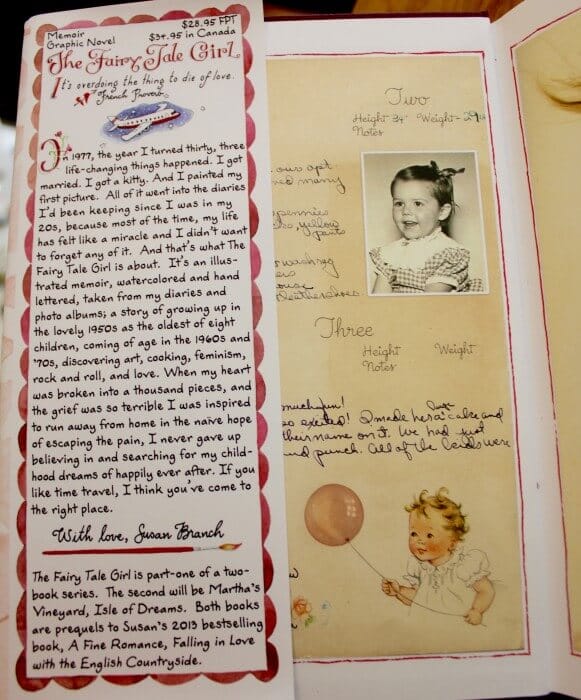 Memoir $28.95 FPT
Graphic Novel $34.95 in Canada
The Fairy Tale Girl
It's overdoing the thing to die of love.
French Proverb
In 1977, the year I turned thirty, three
life-changing things happened. I got
married. I got a kitty. And I painted my
first picture. All of it went into the diaries
I'd been keeping since I was in my
20s, because most of the time, my life
has felt like a miracle and I didn't want
to forget any of it. And that's what The
Fairy Tale Girl is about. It's an illus-
trated memoir, watercolored and hand
lettered, taken from my diaries and
photo albums; a story of growing up in
the lovely 1950s as the oldest of eight
children, coming of age in the 1960s and
'70s, discovering art, cooking, feminism,
rock and roll, and love. When my heart
was broken into a thousand pieces, and
the grief was so terrible I was inspired
to run away from home in the naïve hope
of escaping the pain, I never gave up
believing in and searching for my child-
hood dreams of happily ever after. If you
like time travel, I think you've come to
the right place.
With love, Susan Branch
The Fairy Tale Girl is part-one of a two-
book series. The second will be Martha's
Vineyard, Isle of Dreams. Both books
are prequels to Susan's 2013 bestselling
book, A Fine Romance, Falling in Love
with the English Countryside.
Two
Height 34 Weight
Notes
our apt
many
pennies
yellow
pants
leather shoes.
Three
Height Weight
Notes
much fun!
so excited! I made her a large cake and
their name on it. We had just
and punch. All of the kids were